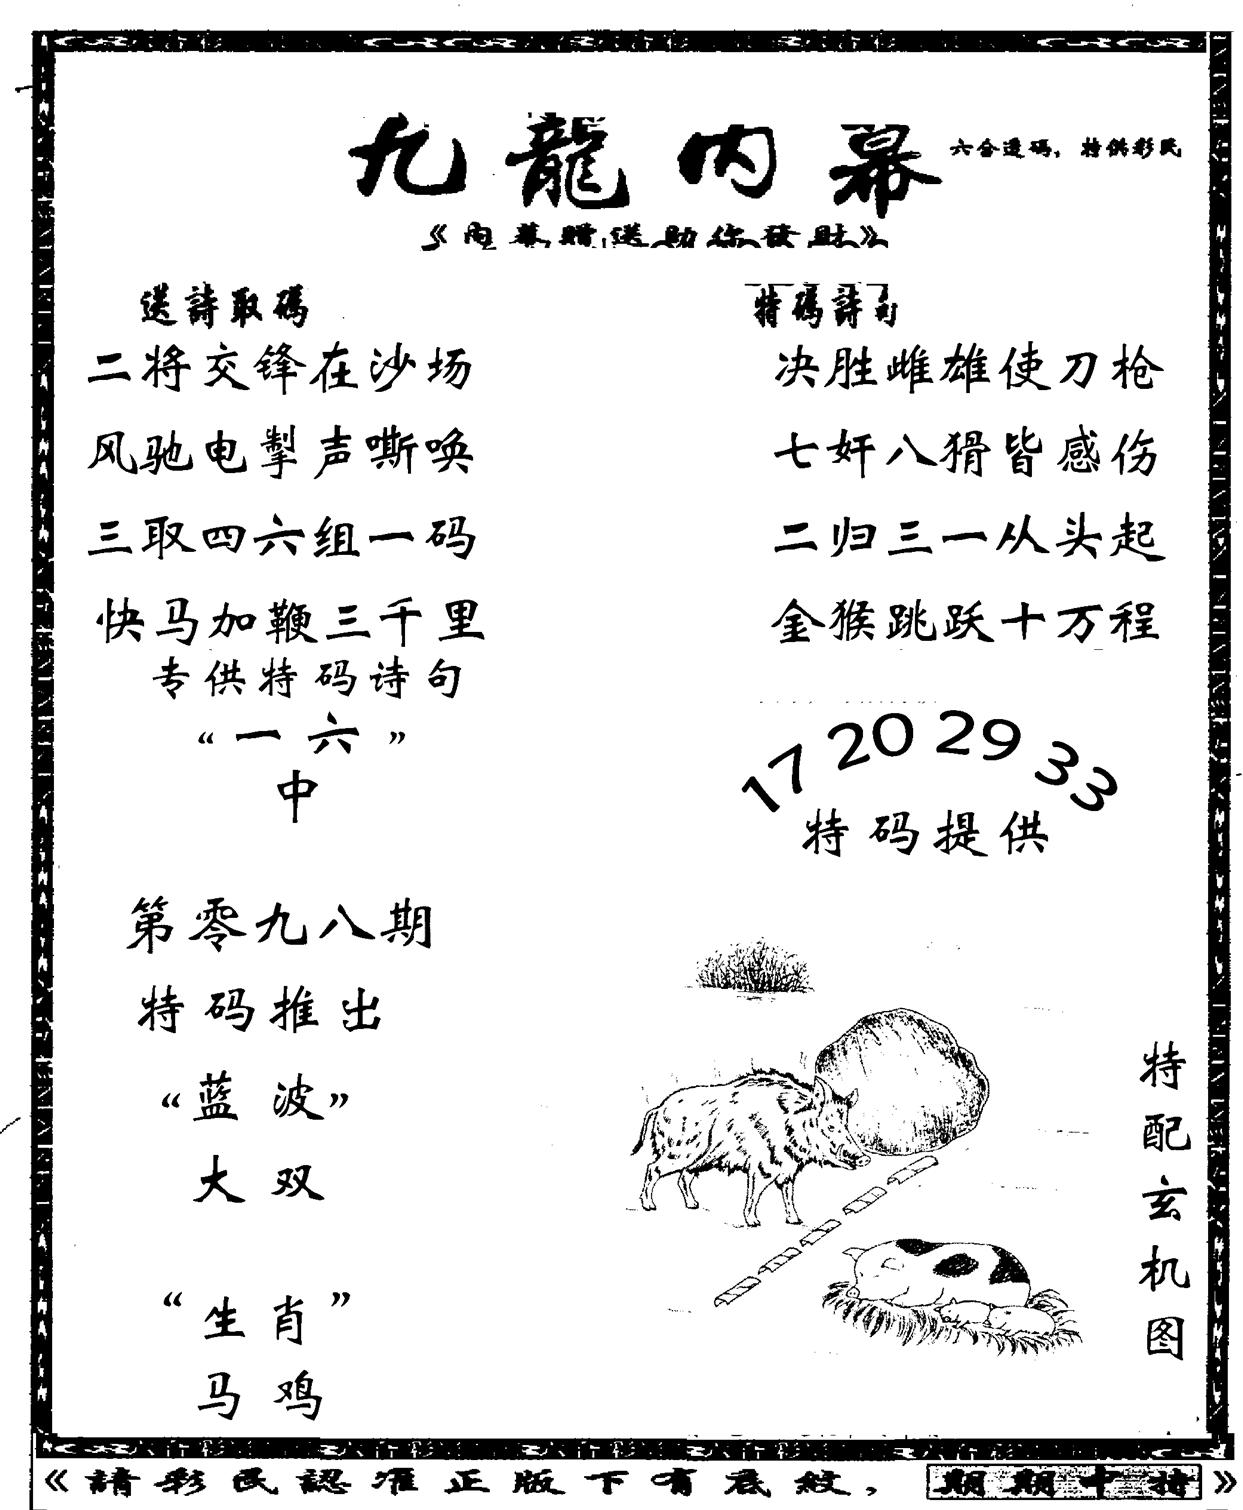 九龍内幕
六合透码，特供彩民
《内幕贈送助你發財》
送詩取碼
二将交锋在沙场
风驰电掣声嘶唤
三取四六组一码
快马加鞭三千里
专供特码诗句
“一六”
中
第零九八期
特码推出
“蓝波”
大双
“生肖”
马鸡
特碼詩句
决胜雌雄使刀枪
七奸八猾皆感伤
二归三一从头起
金猴跳跃十万程
17 20 29 33
特码提供
特配玄机图
《請彩民認准正版下有底紋，期期中特》